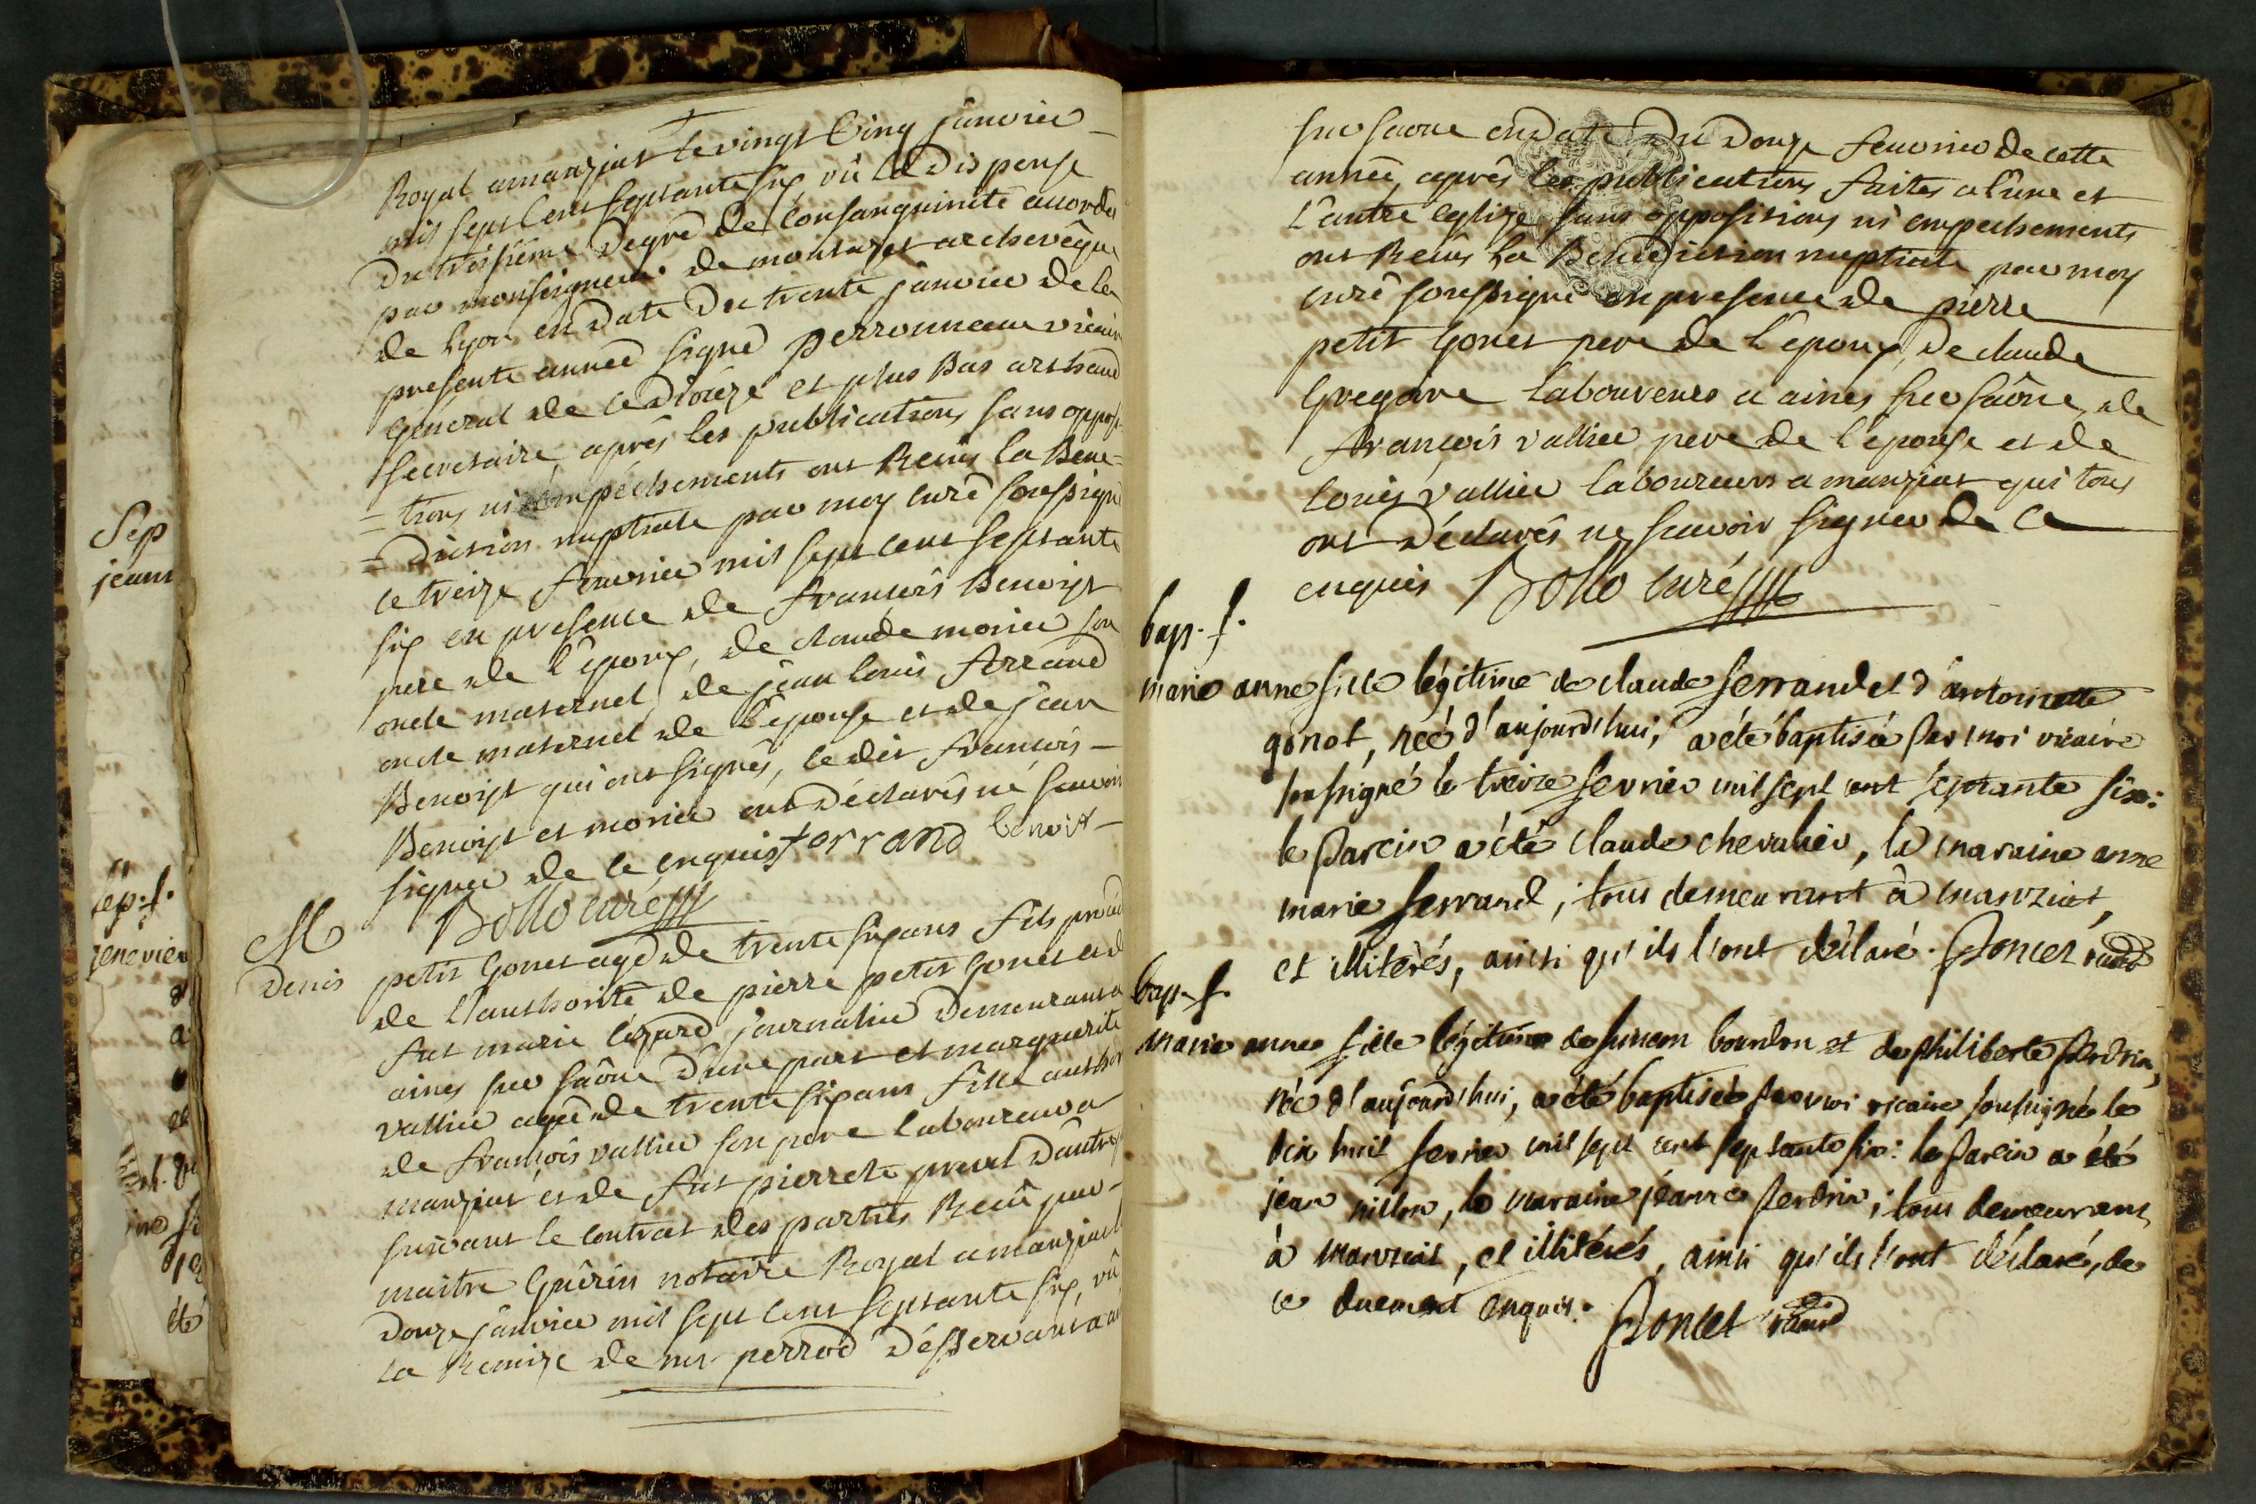 Sep
jeann
sep. f.
genevier
été
Royal a manziat le vingt Cinq janvier
mil sept Cent septante six, vû la dispense
du troisième degré de Consanguinité accordée
par monseigneur de montazet archevêque
de Lyon en date du trente janvier de la
presente année signé perronneau vicaire
général de ce diocèze et plus bas arthaud
secretaire, après les publications sans opposi
= tions ni empêchements ont Reçus la Bene =
= diction nuptiale par moy curé soussigné
le treize fevrier mil sept cent septante
six en presence de françois Benoist
pere de l'epoux, de claude monier son
oncle maternel, de jean louis ferrand
oncle maternel de l'epouse et de jean
Benoist qui ont signés, le dit françois
Benoist et monier ont déclarés ne savoir
signer de ce enquis ferrand benoit
Bollo curé
M
Denis petit Gonet agé de trente six ans fils procédant
de l'authorité de pierre petit Gonet et de
fut marie lézard journalier demeurant a
aines sur saône d'une part et marguerite
vallier agée de trente six ans fille author
de françois vallier son pere laboureur a
manziat et de fut pierrete prevel d'autre
suivant le contrat des parties Recû par
maitre Guérin notaire Royal a manziat le
douze janvier mil sept cent septante six, vû
la Remize de mr perrod désservant a ai
sur saone en date du douze fevrier de cette
année, après les publications faites a l'une et
l'autre eglize sans oppositions ni empechements
ont Recûs la Benediction nuptiale par moy
curé soussigné en presence de pierre
petit Gonet pere de l'epoux, de claude
Gregoire laboureur a aines sur saône, de
françois vallier pere de l'epouse et de
louis vallier laboureurs a manziat qui tous
ont déclarés ne savoir signer de ce
enquis Bollo curé
bap. f.
marie anne fille légitime de claude ferrand et d'antoinette
gonot, née d'aujourd'hui, a été baptisée par moi vicaire
soussigné le treize fevrier mil sept cent septante six:
le parein a été claude chevalier, la maraine anne
marie ferrand, tous demeurant à manziat,
et illiterés, ainsi qu'ils l'ont déclaré. Poncet vicaire
bap. f.
marie anne fille légitime de simeon bourdon et de philiberte perdrix,
née d'aujourd'hui, a été baptisée par moi vicaire soussigné le
dix huit fevrier mil sept cent septante six: le parein a été
jean millon, la maraine jeanne perdrix, tous demeurant
à manziat, et illiterés, ainsi qu'ils l'ont déclaré, de
ce duement enquis. Poncet vicaire